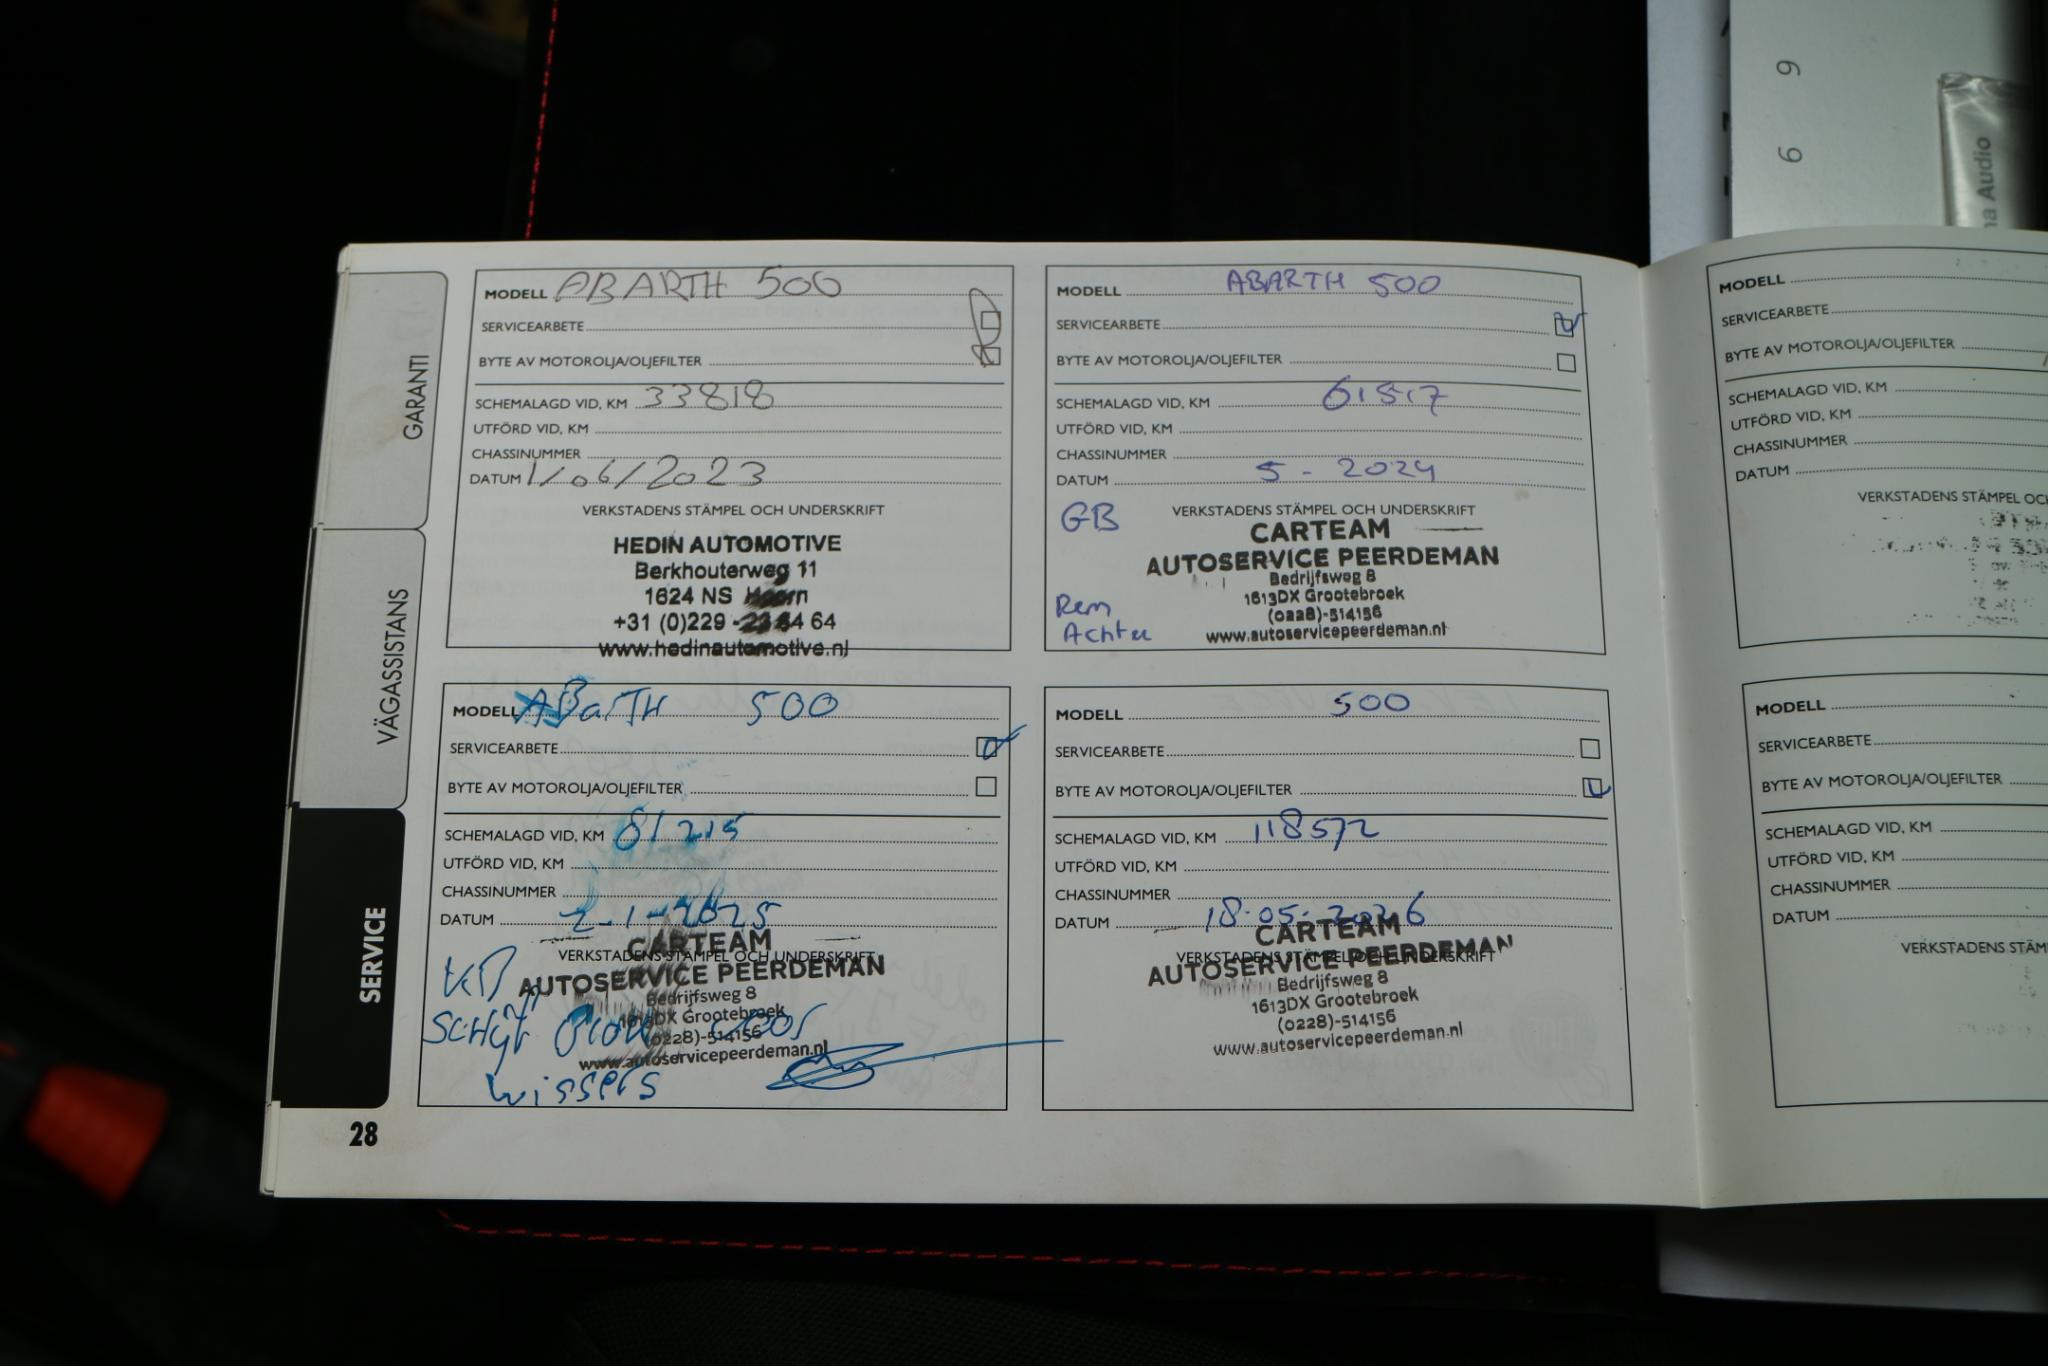 GARANTI
VÄGASSISTANS
SERVICE
28
MODELL ABARTH 500
SERVICEARBETE
BYTE AV MOTOROLJA/OLJEFILTER
SCHEMALAGD VID, KM 33818
UTFÖRD VID, KM
CHASSINUMMER
DATUM 1/06/2023
VERKSTADENS STÄMPEL OCH UNDERSKRIFT
HEDIN AUTOMOTIVE
Berkhouterweg 11
1624 NS Hoorn
+31 (0)229 - 23 64 64
www.hedinautomotive.nl
MODELL ABARTH 500
SERVICEARBETE
BYTE AV MOTOROLJA/OLJEFILTER
SCHEMALAGD VID, KM 61517
UTFÖRD VID, KM
CHASSINUMMER
DATUM 5 - 2024
GB VERKSTADENS STÄMPEL OCH UNDERSKRIFT
CARTEAM
AUTOSERVICE PEERDEMAN
Bedrijfsweg 8
1613DX Grootebroek
(0228)-514156
www.autoservicepeerdeman.nl
Rem
Achter
MODELL ABarTH 500
SERVICEARBETE
BYTE AV MOTOROLJA/OLJEFILTER
SCHEMALAGD VID, KM 81215
UTFÖRD VID, KM
CHASSINUMMER
DATUM 2-1-2025
VERKSTADENS STÄMPEL OCH UNDERSKRIFT
CARTEAM
AUTOSERVICE PEERDEMAN
Bedrijfsweg 8
1613DX Grootebroek
(0228)-514156
www.autoservicepeerdeman.nl
voor
wissers
MODELL 500
SERVICEARBETE
BYTE AV MOTOROLJA/OLJEFILTER
SCHEMALAGD VID, KM 118572
UTFÖRD VID, KM
CHASSINUMMER
DATUM 18-05-2026
VERKSTADENS STÄMPEL OCH UNDERSKRIFT
CARTEAM
AUTOSERVICE PEERDEMAN
Bedrijfsweg 8
1613DX Grootebroek
(0228)-514156
www.autoservicepeerdeman.nl
MODELL
SERVICEARBETE
BYTE AV MOTOROLJA/OLJEFILTER
SCHEMALAGD VID, KM
UTFÖRD VID, KM
CHASSINUMMER
DATUM
VERKSTADENS STÄMPEL
MODELL
SERVICEARBETE
BYTE AV MOTOROLJA/OLJEFILTER
SCHEMALAGD VID, KM
UTFÖRD VID, KM
CHASSINUMMER
DATUM
VERKSTADENS
Audio